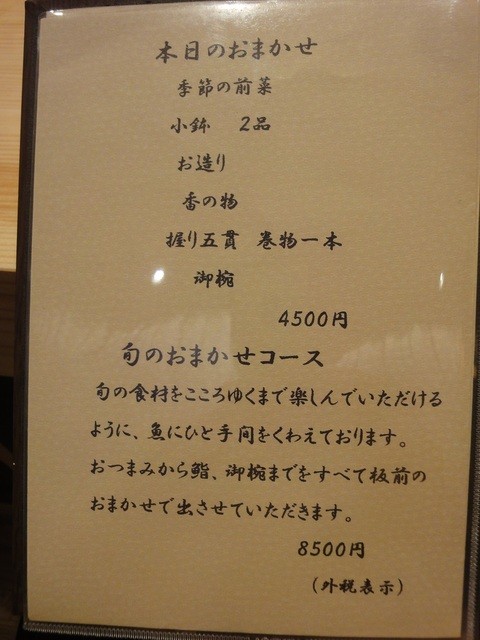 本日のおまかせ
季節の前菜
小鉢　2品
お造り
香の物
握り五貫　巻物一本
御椀
4500円
旬のおまかせコース
旬の食材をこころゆくまで楽しんでいただける
ように、魚にひと手間をくわえております。
おつまみから鮨、御椀までをすべて板前の
おまかせで出させていただきます。
8500円
(外税表示)